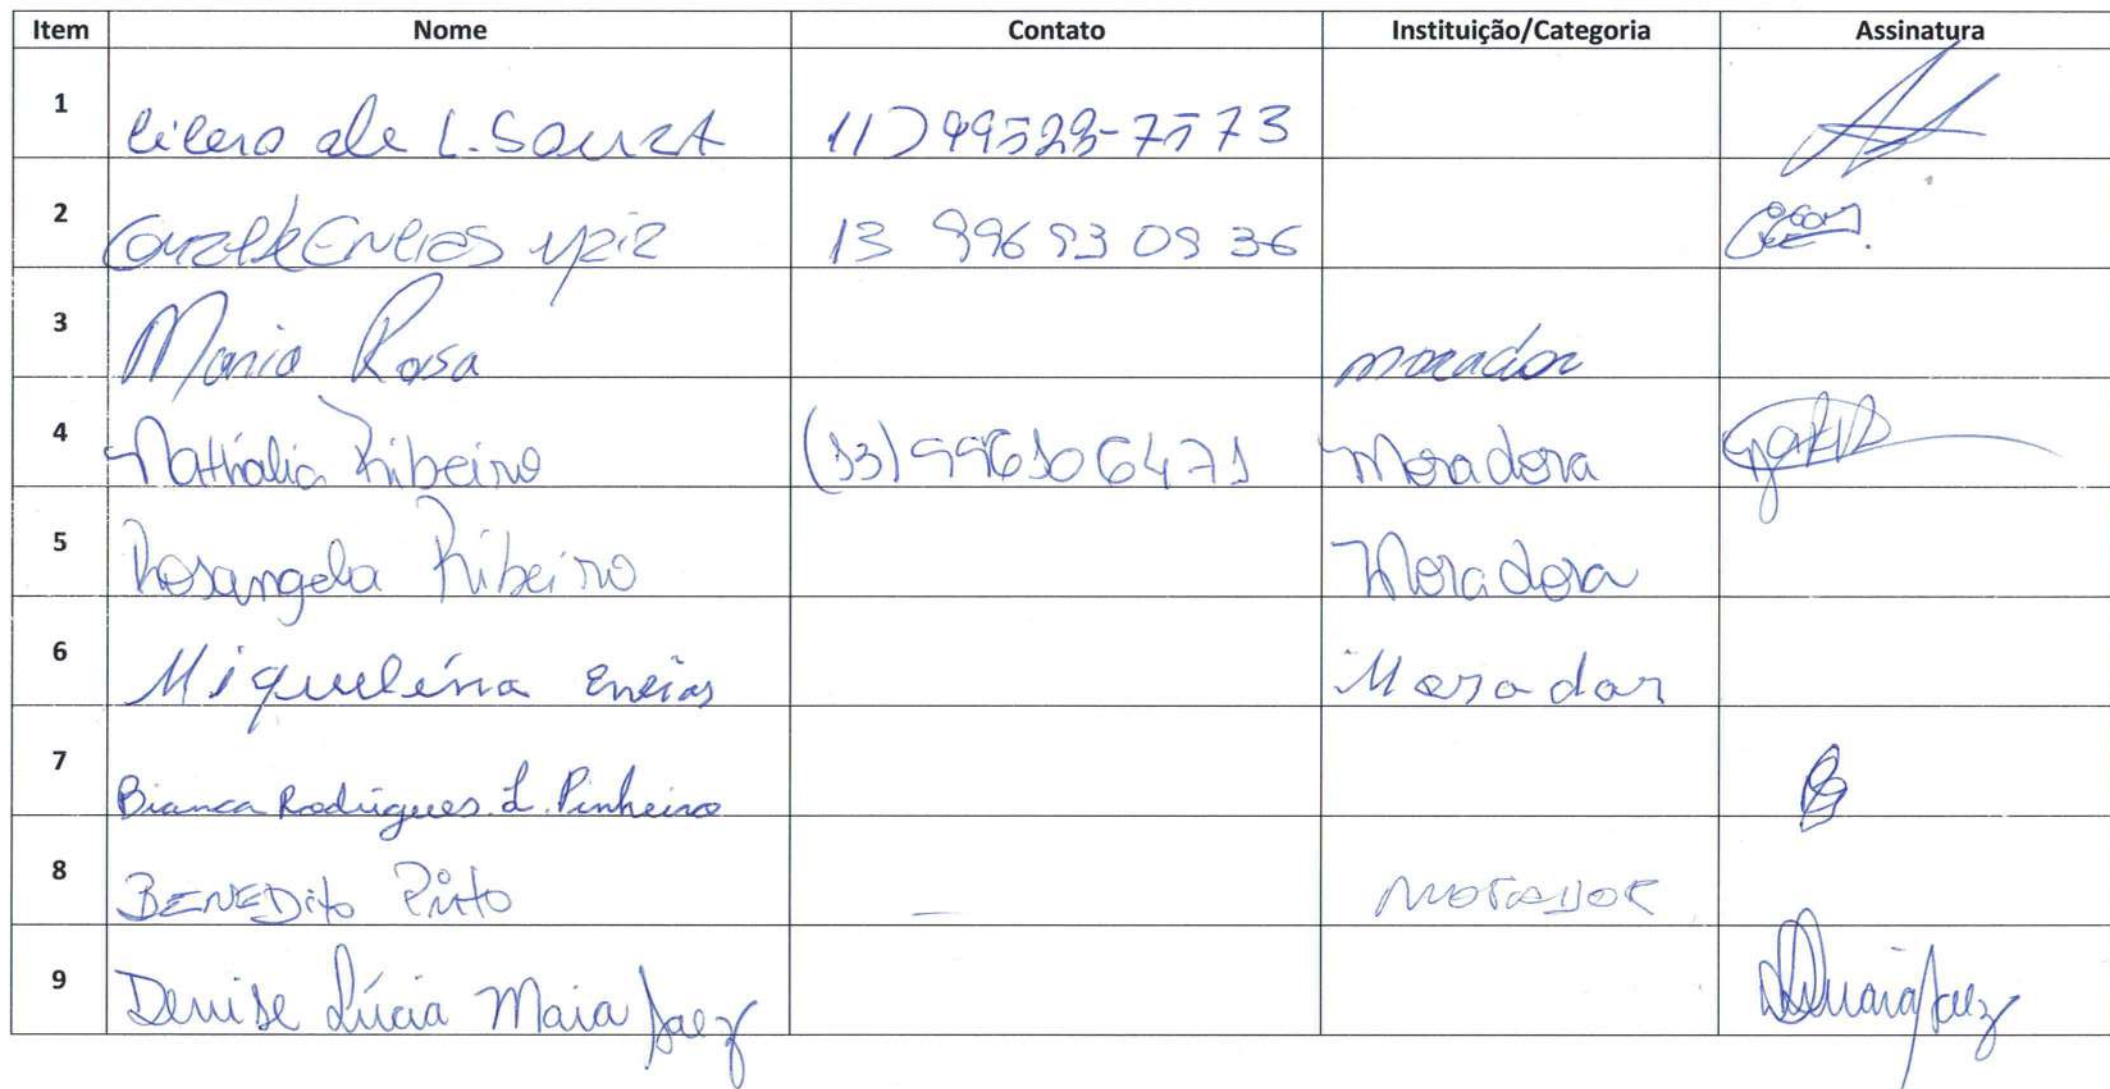 Item Nome Contato Instituição/Categoria Assinatura
1 Cícero de L. Souza 11) 99529-7573
2 Eneias 13 99693 09 36
3 Maria Rosa morador
4 Nathália Ribeiro (13) 996106471 Moradora
5 Rosangela Ribeiro Moradora
6 Miquelina Eneias Morador
7 Bianca Rodrigues L. Pinheiro
8 BENEDito Pinto — morador
9 Denise Lúcia Maia Jaez